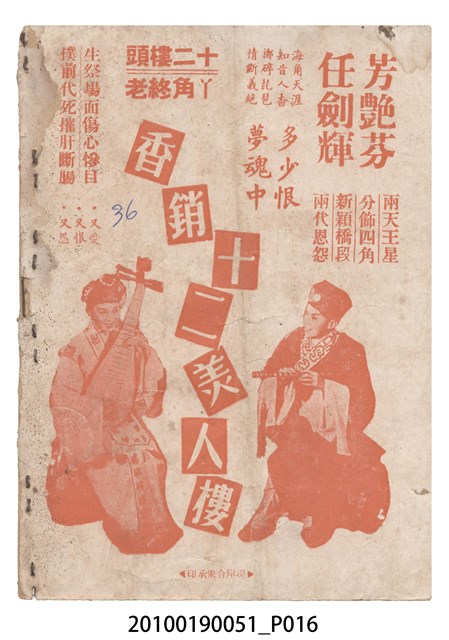 芳艷芬
任劍輝
兩天王星
分飾四角
新穎橋段
兩代恩怨
海角天涯
知音人杳
擲碎琵琶
情斷義絕
多少恨
夢魂中
十二樓頭
丫角終老
生祭場面傷心慘目
撲前代死摧肝斷腸
・又愛
・又恨
・又怨
36
香銷十二美人樓
港岸合衆承印
20100190051_P016